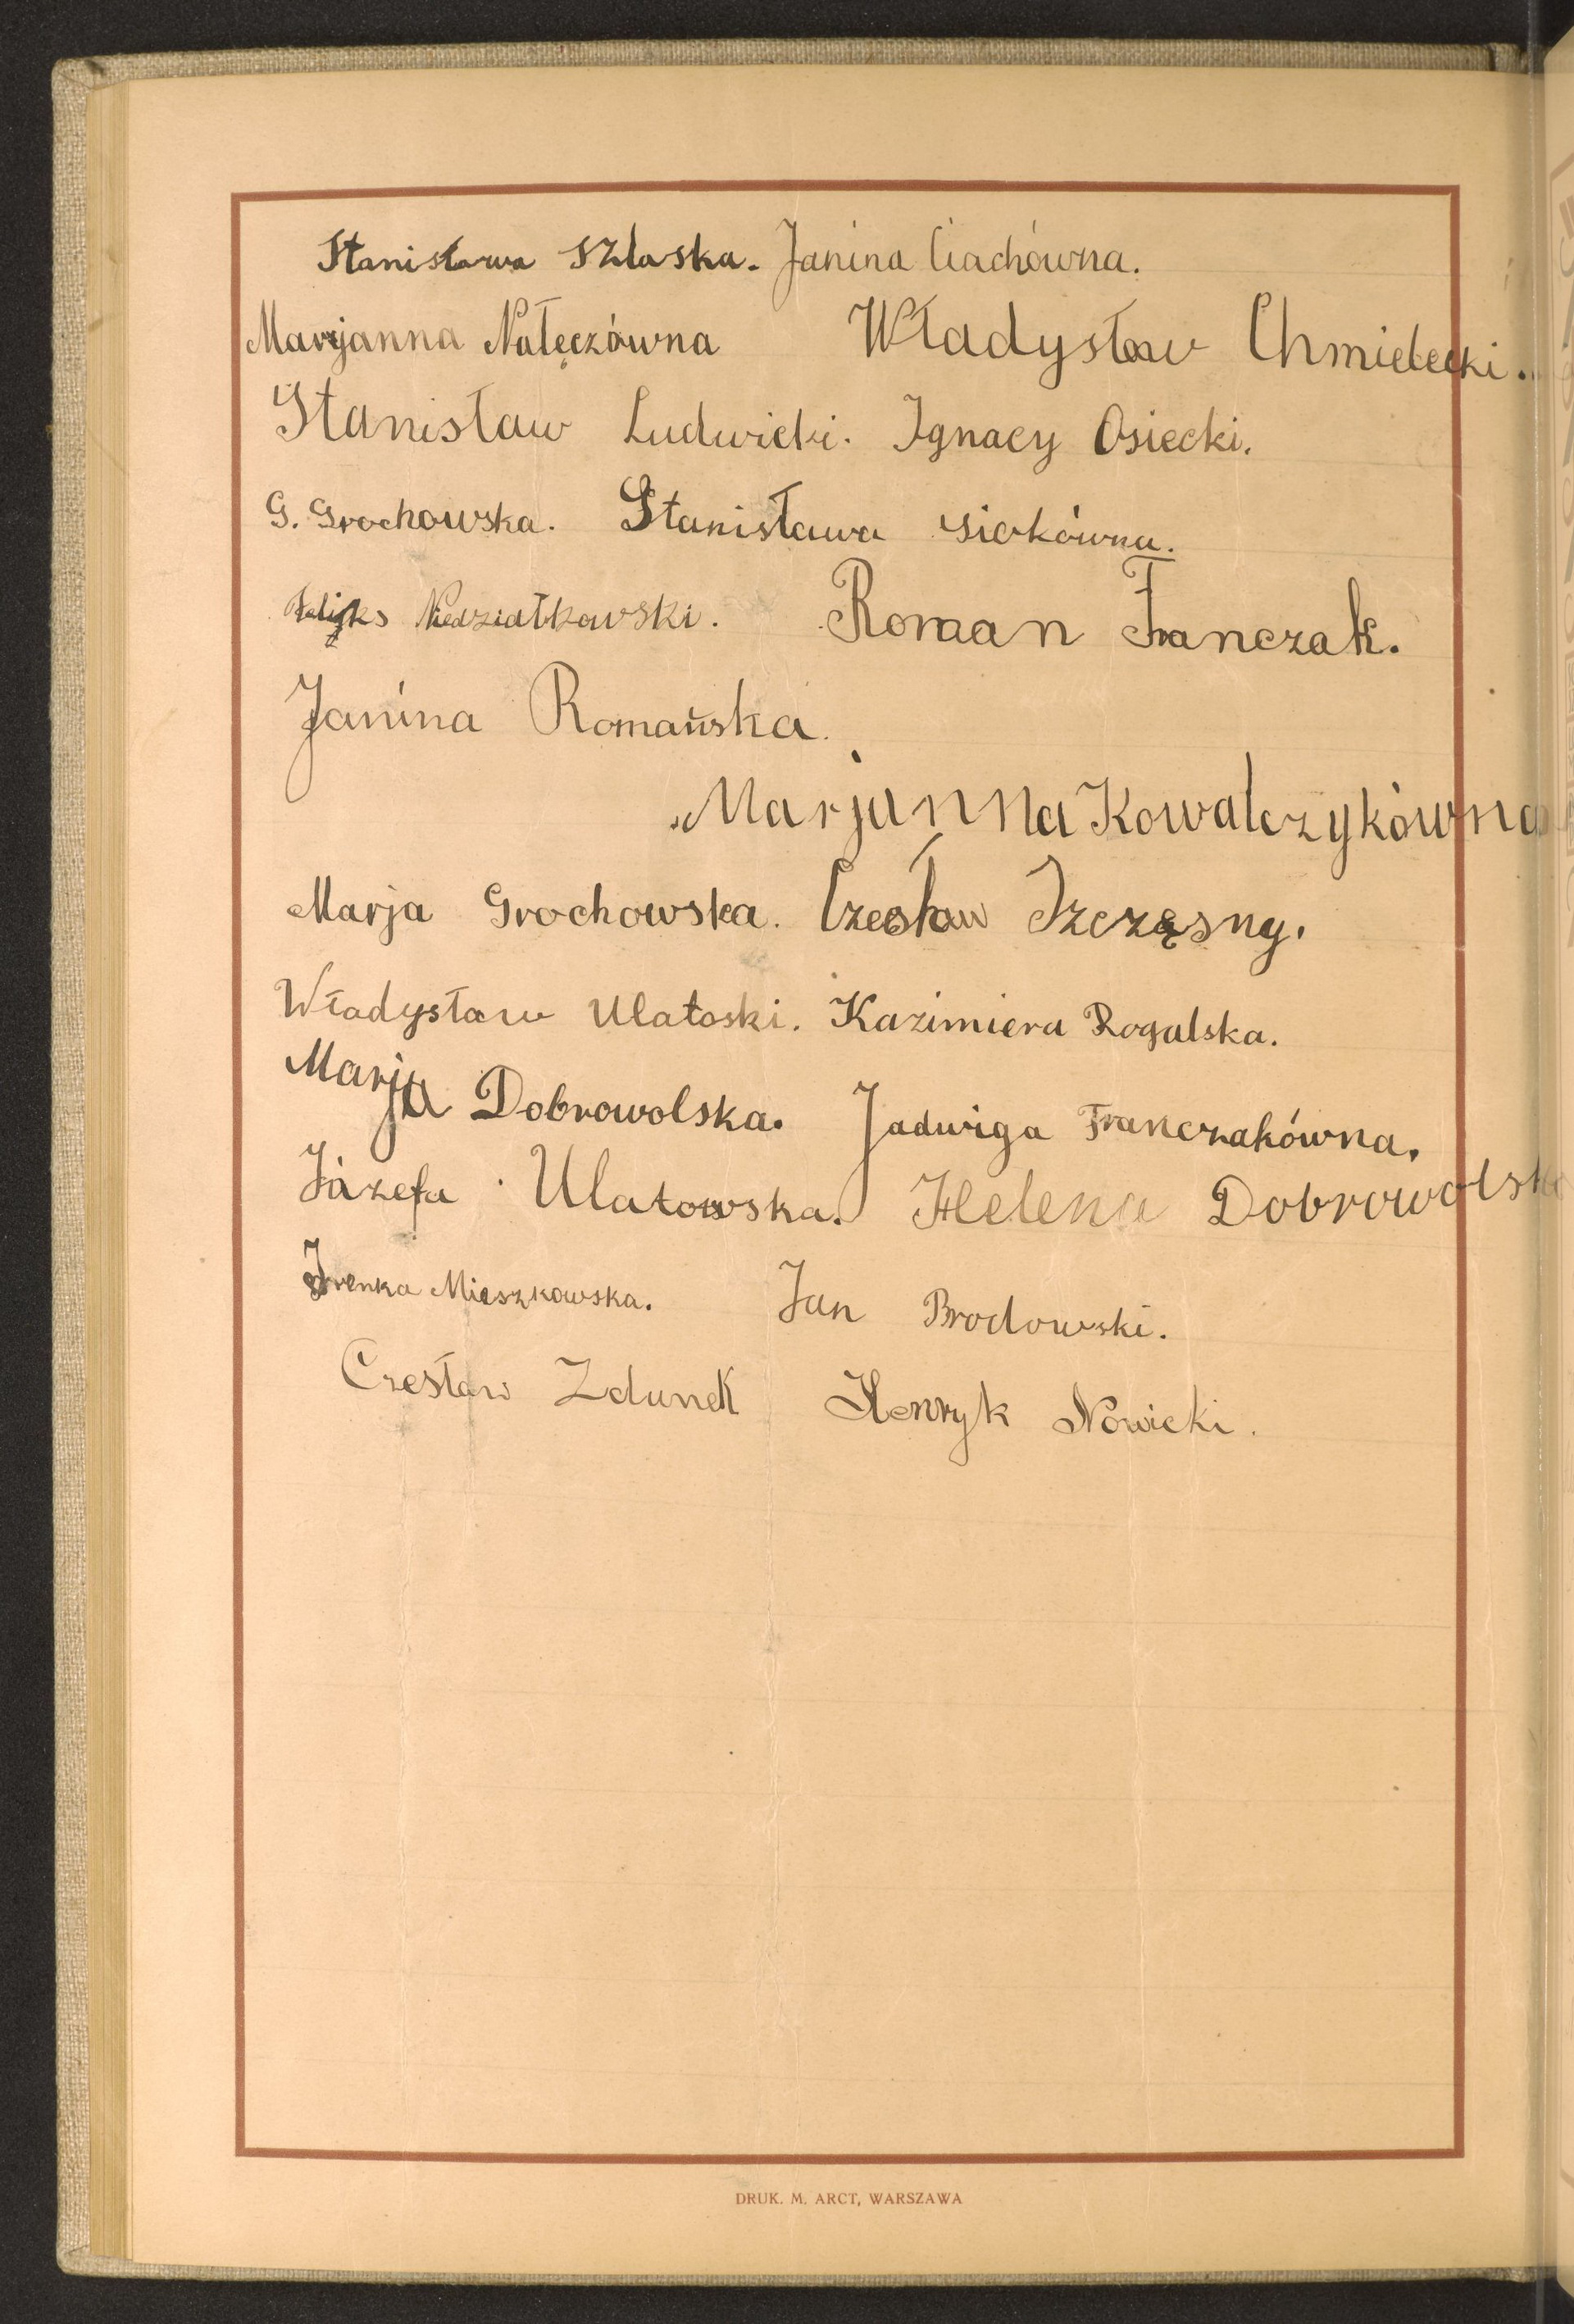 Stanisława Szlaska. Janina Ciachówna.
Marjanna Nałęczówna Władysław Chmielecki.
Stanisław Ludwicki. Ignacy Osiecki.
G. Grochowska. Stanisława Siekówna.
Feliks Niedziałkowski. Roman Franczak.
Janina Romańska.
Marjanna Kowalczykówna
Marja Grochowska. Czesław Szczęsny.
Władysław Ulatoski. Kazimiera Rogalska.
Marja Dobrowolska. Jadwiga Franczakówna.
Józefa Ulatowska. Helena Dobrowolska
Irenka Mieszkowska. Jan Brodowski.
Czesław Zdunek Henryk Nowicki.
DRUK. M. ARCT, WARSZAWA